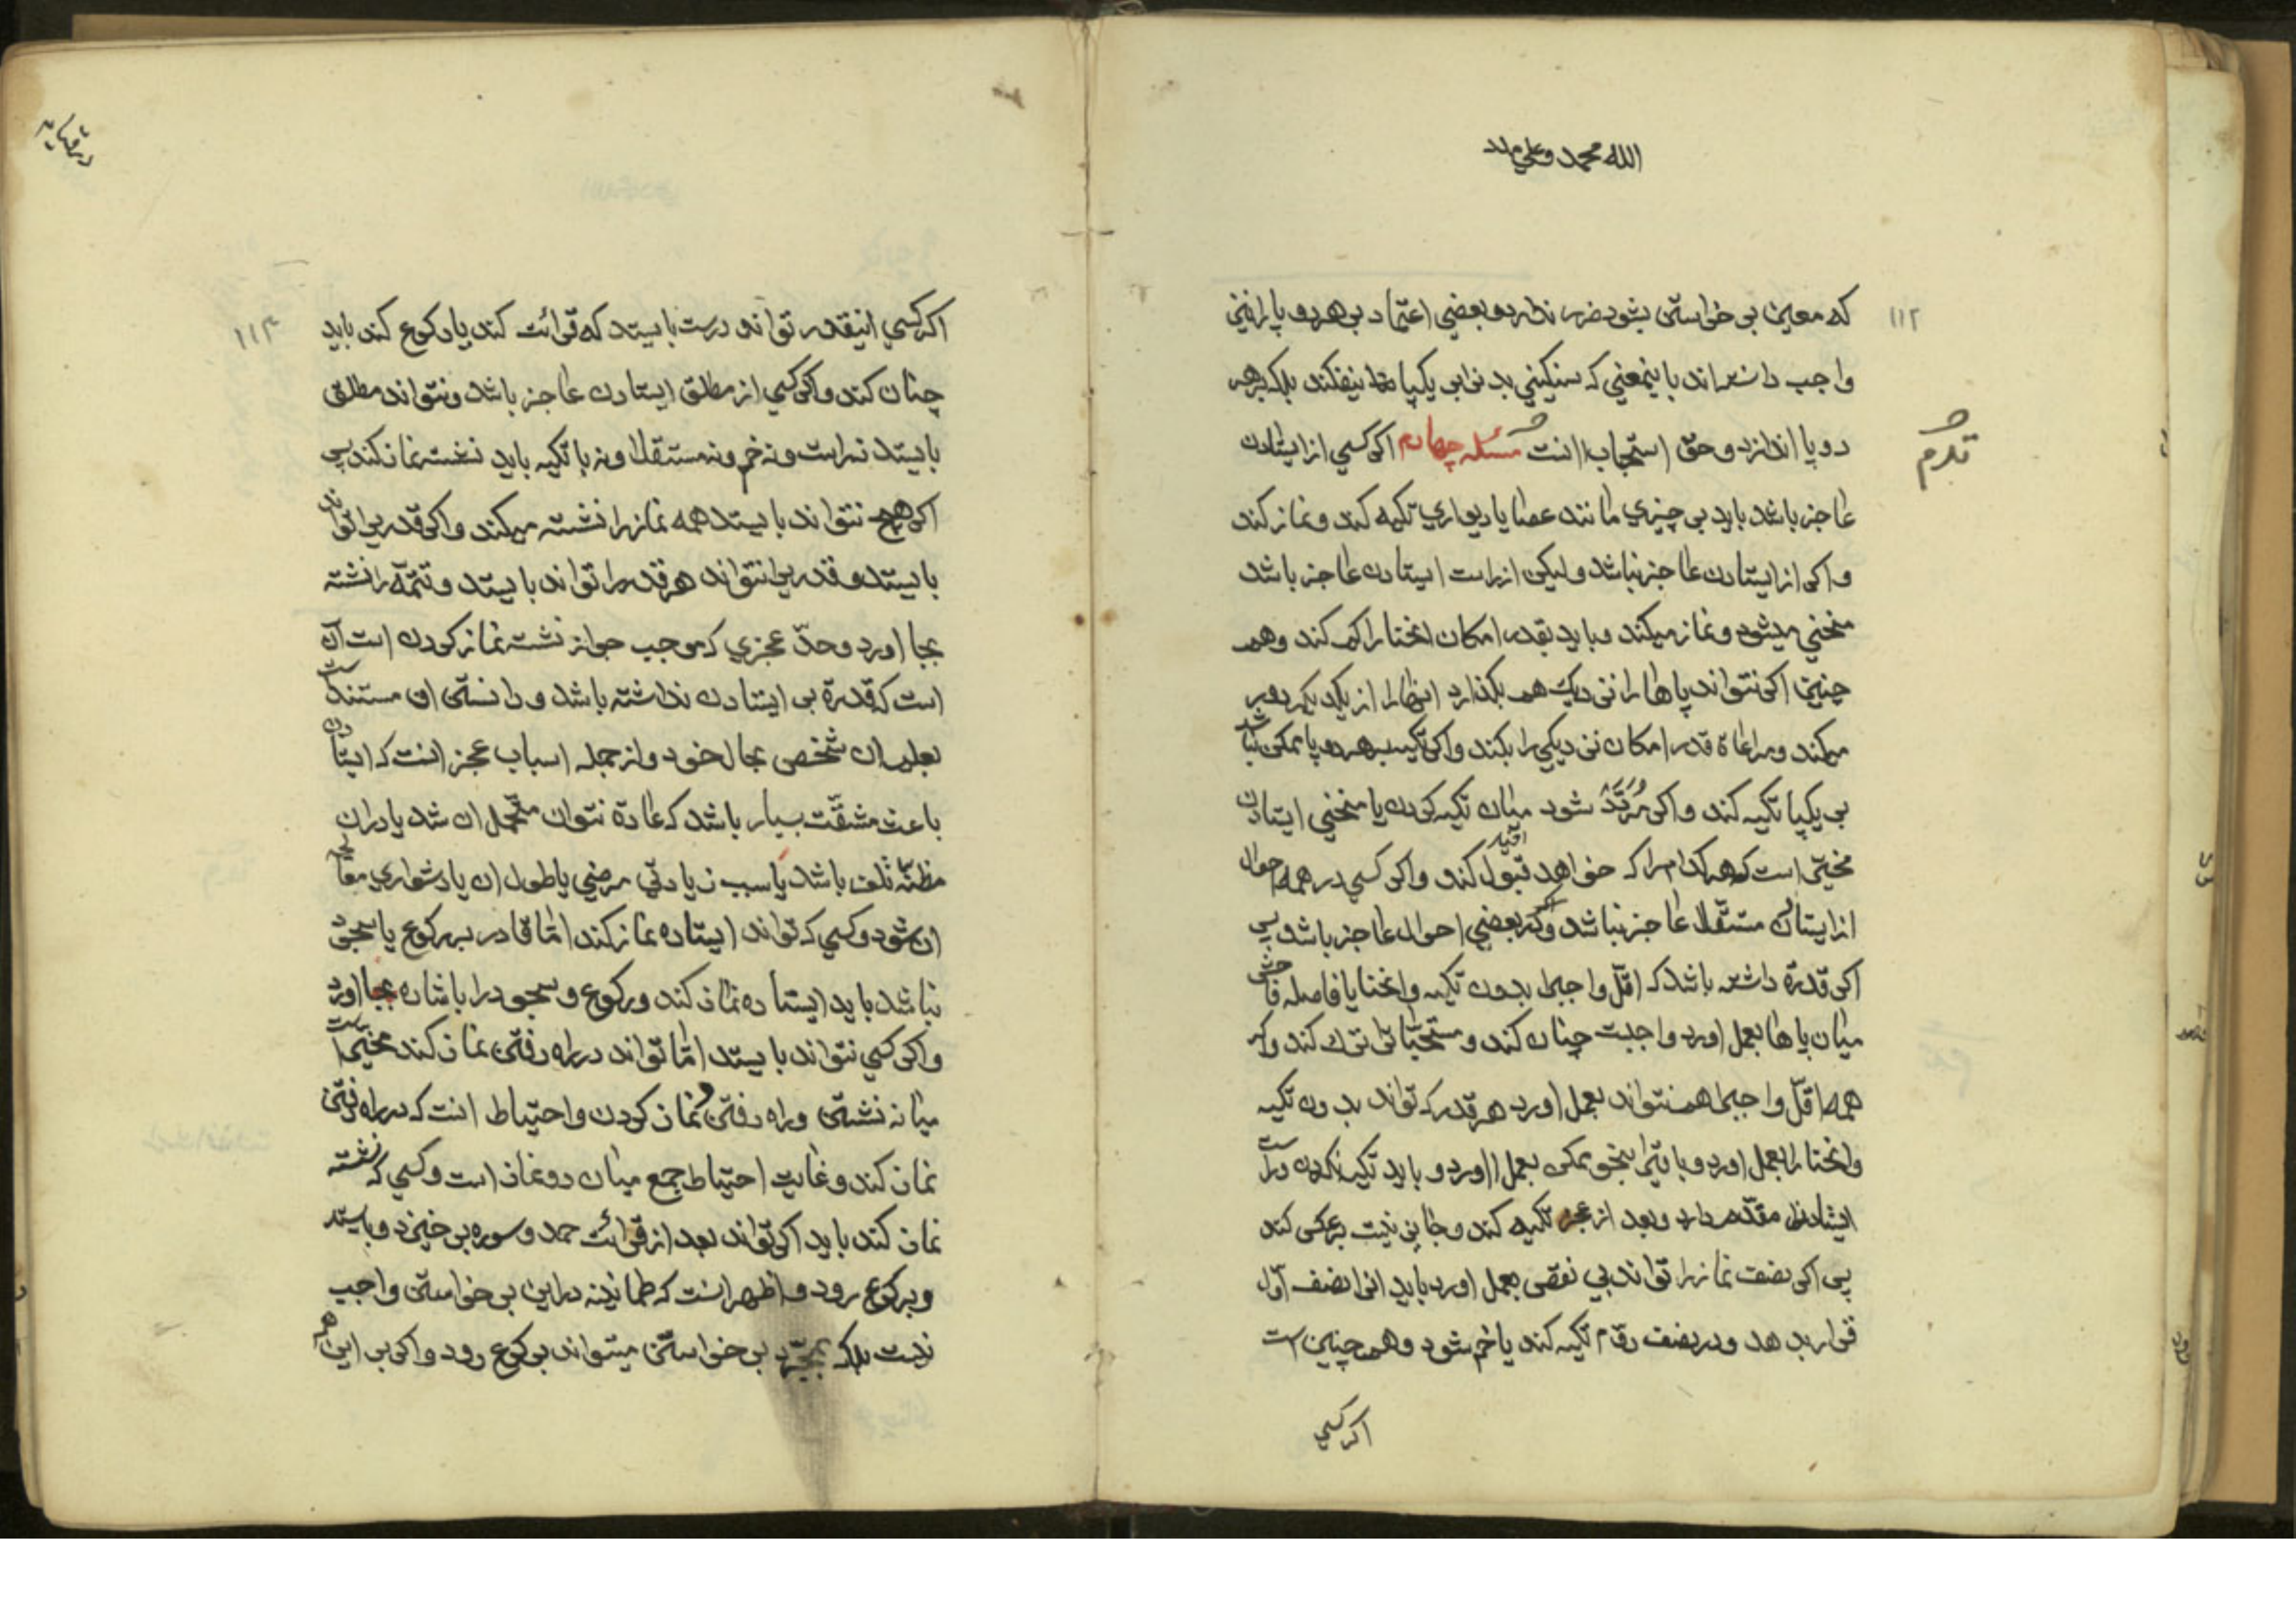 الله محمد وعلي
۱۱۲
که معین بر خواستن بشود ضرر ندارد و بعضي اعتماد بر هر دو پا را نیز
واجب دانسته‌اند باینمعني که سنکیني بدن را بر یکپا نیفکند بلکه بر هر
دو پا اندازد و حق استحباب انست مسئله چهارم اکر کسي از ایستادن
عاجز باشد باید بر چیزي مانند عصا یا دیواري تکیه کند و نماز کند
و اکر از ایستادن عاجز نباشد ولیکن از راست ایستادن عاجز باشد
منحني میشود و نماز میکند و باید بقدر امکان انحنا را کم کند و هم
چنین اکر نتواند پاها را نزدیک هم بکذارد انها را از یکدیکر دور
میکند و مراعاة قدر امکان نزدیکي را بکند و اکر تکیه بر هر دو پا ممکن نباشد
بر یکپا تکیه کند و اکر مُرَدَّدْ شود میان تکیه کردن یا منحني ایستادن
مخیّر است که هر کدام را که خواهد قبول کند و اکر کسي در همه احوال
از ایستادن مستقلا عاجز نباشد و در بعضي احوال عاجز باشد پس
اکر قدرة داشته باشد که اقلّ واجب را بدون تکیه و انحنا یا فاصله فاحش
میان پاها بعمل اورد واجبست چنان کند و مستحبّات را ترک کند و اکر
همه اقلّ واجب را هم نتواند بعمل اورد هر قدر که تواند بدون تکیه
و انحنا را بعمل اورد و باقي را بنحو ممکن بعمل اورد و باید تکیه نکردن و راست
ایستادن را مقدم دارد و بعد از عجز تکیه کند و جایز نیست برعکس کند
پس اکر نصف نماز را تواند بي نقص بعمل اورد باید انرا نصف اوّل
قرار بدهد و در نصف دوّم تکیه کند یا خم شود و همچنین است
اکر کسي
۱۱۳
اکر کسي اینقدر تواند درست بایستد که قرائت کند یا رکوع کند باید
چنان کند و اکر کسي از مطلق ایستادن عاجز باشد و نتواند مطلق
بایستد نه راست و نه خم و نه مستقلا و نه با تکیه باید نشسته نماز کند پس
اکر هیچ نتواند بایستد همه نماز را نشسته میکند و اکر قدري را تواند
بایستد و قدري را نتواند هر قدر را تواند بایستد و تتمّه را نشسته
بجا اورد و حدّ عجزي که موجب جواز نشسته نماز کردن است آن
است که قدرة بر ایستادن نداشته باشد و دانستن ان مستند است
بعلم ان شخص بحال خود و از جمله اسباب عجز انست که ایستادن
باعث مشقّت بسیار باشد که عادة نتوان متحمل ان شد یا در ان
مظنّه تلف باشد یا سبب زیادتي مرضي یا طول ان یا دشواري معالجه
ان شود و کسي که تواند ایستاده نماز کند امّا قادر بر رکوع یا سجود
نباشد باید ایستاده نماز کند و رکوع و سجود را با شاره بجا اورد
و اکر کسي نتواند بایستد امّا تواند در راه رفتن نماز کند مخیر است
میانه نشستن و راه رفتن و نماز کردن و احتیاط انست که در راه رفتن
نماز کند و غایت احتیاط جمع میان دو نماز است و کسي که نشسته
نماز کند باید اکر تواند بعد از قرائت حمد و سوره بر خیزد و بایستد
و برکوع رود و اظهر انست که طمانینه در این بر خواستن واجب
نیست بلکه بمجرّد بر خواستن میتواند برکوع رود و اکر بر این هم